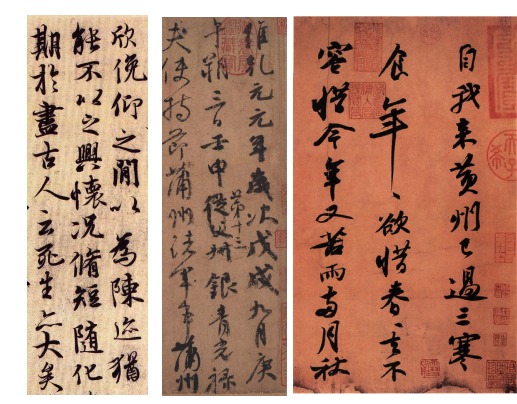 欣俛仰之閒以為陳迹猶
能不以之興懷况脩短隨化
期於盡古人云死生亦大矣
維乾元元年歲次戊戌九月庚
午朔三日壬申從父叔銀青光祿
第十三
夫使持節蒲州諸軍事蒲州
自我来黄州已過三寒
食年〻欲惜春〻去不
容惜今年又苦雨兩月秋